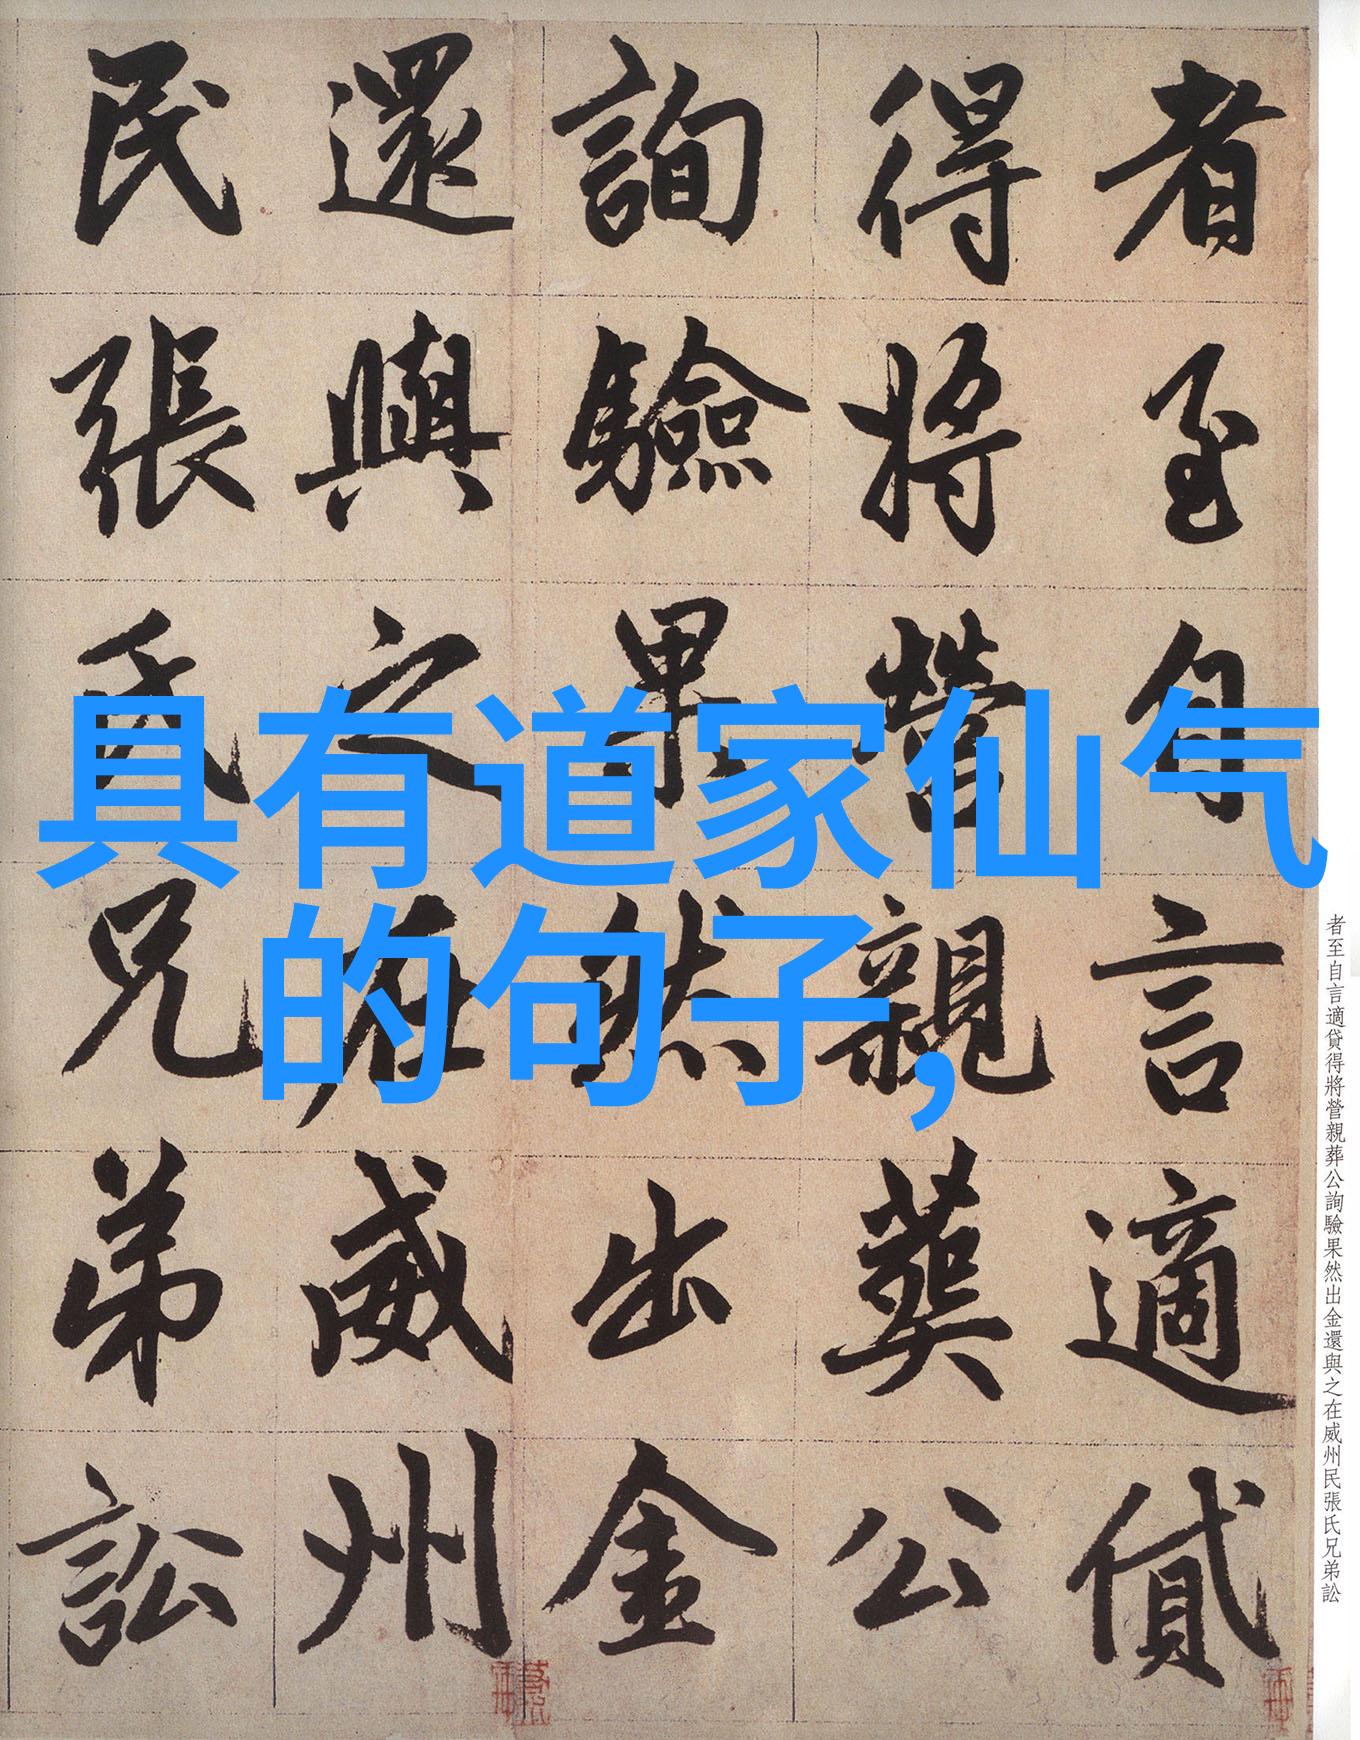 者至自言適貸
得將營親葬公
詢驗果然出金
還與之在威州
民張氏兄弟訟
具有道家仙气
的句子，
者至自言適貸得將營親葬公詢驗果然出金還與之在威州民張氏兄弟訟